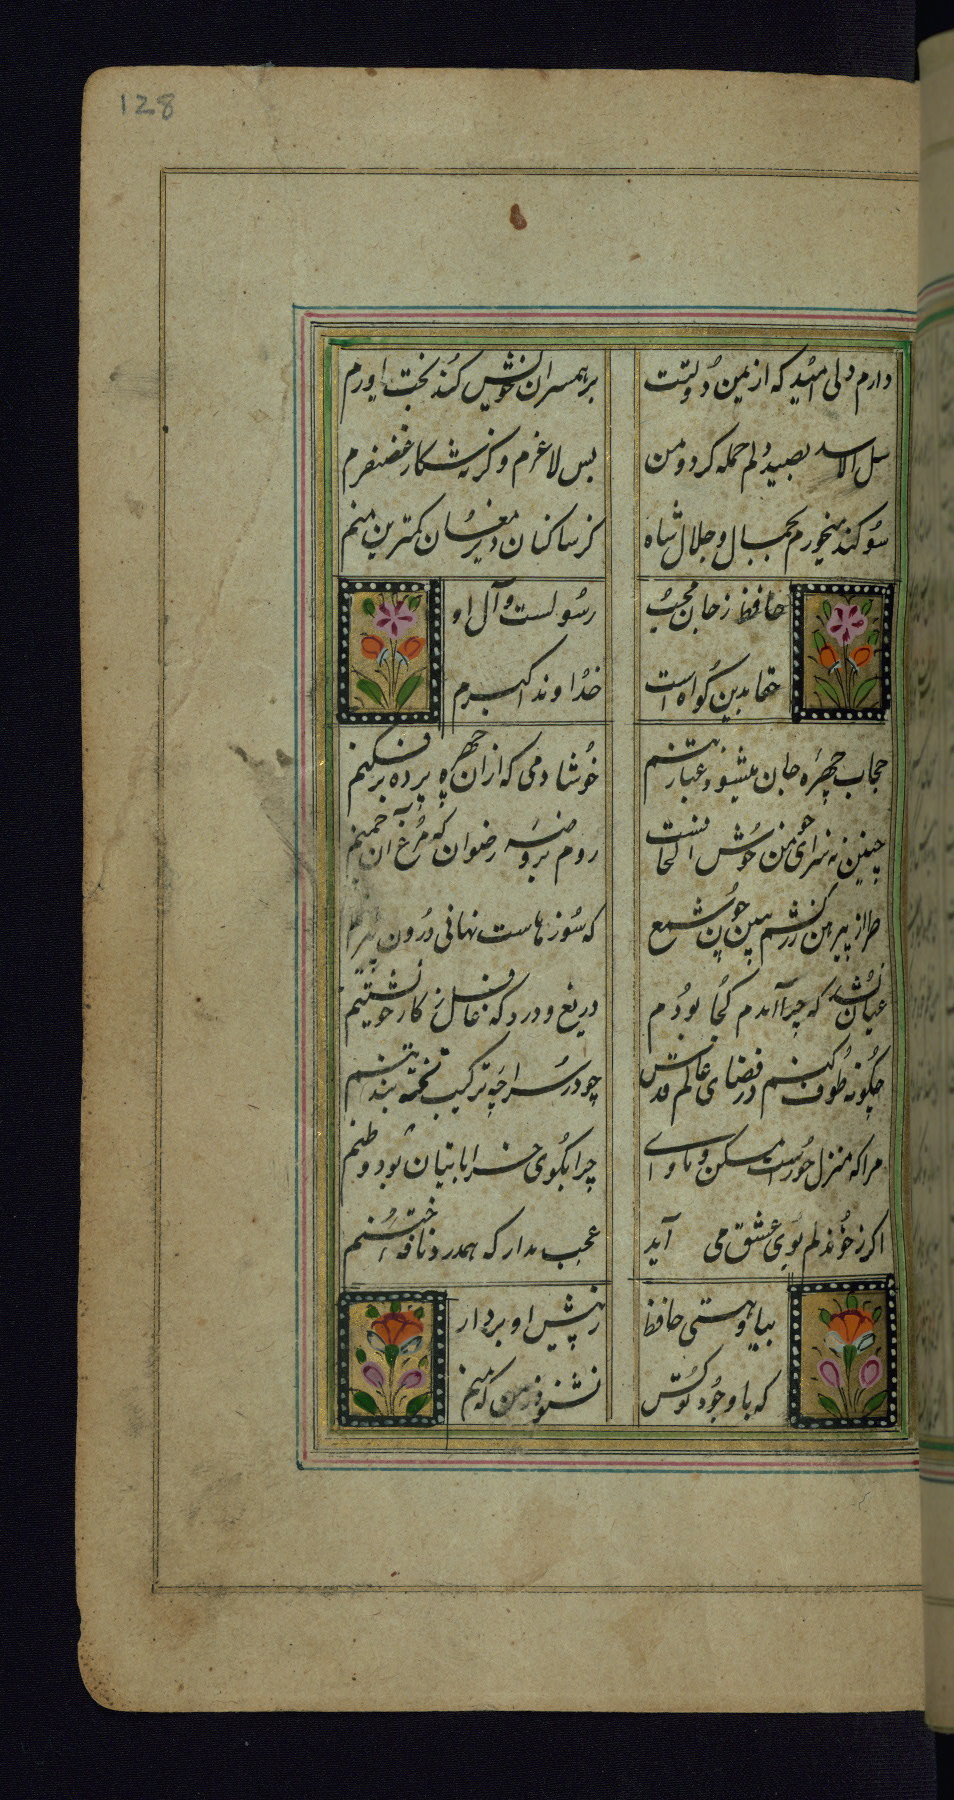 128
دارم دلی امید که از یمن دولتت
بر همسران خویش کند بخت یاورم
شبل الاسد بصید دلم حمله کرد و من
بس لاغرم وگرنه شکار غضنفرم
سوکند میخورم بجمال و جلال شاه
کز ساکنان دیر مغان کمترین منم
حافظ زجان محب
رسولست و آل او
حقا بدین کواه است
خداوند اکبرم
حجاب چهره جان میشود غبار تنم
خوشا دمی که ازان چهره پرده برفکنم
چنین نه سزای چو من خوش الحانست
روم بروضه رضوان که مرغ آن چمنم
طراز پیرهن زرکشم مبین چون شمع
که سوزهاست نهانی درون پیرهنم
عیان نشد که چرا آمدم کجا بودم
دریغ و درد که غافل ز کار خویشتنم
چکونه طوف کنم در فضای عالم قدس
چو در سراچه ترکیب تخته بند تنم
مرا که منزل حورست مسکن و ماوای
چرا بکوی خراباتیان بود وطنم
اکر ز خون دلم بوی عشق می آید
عجب مدار که همدرد نافه ختنم
بیا و هستی حافظ
ز پیش او بردار
که با وجود تو کس
نشنود ز من که منم